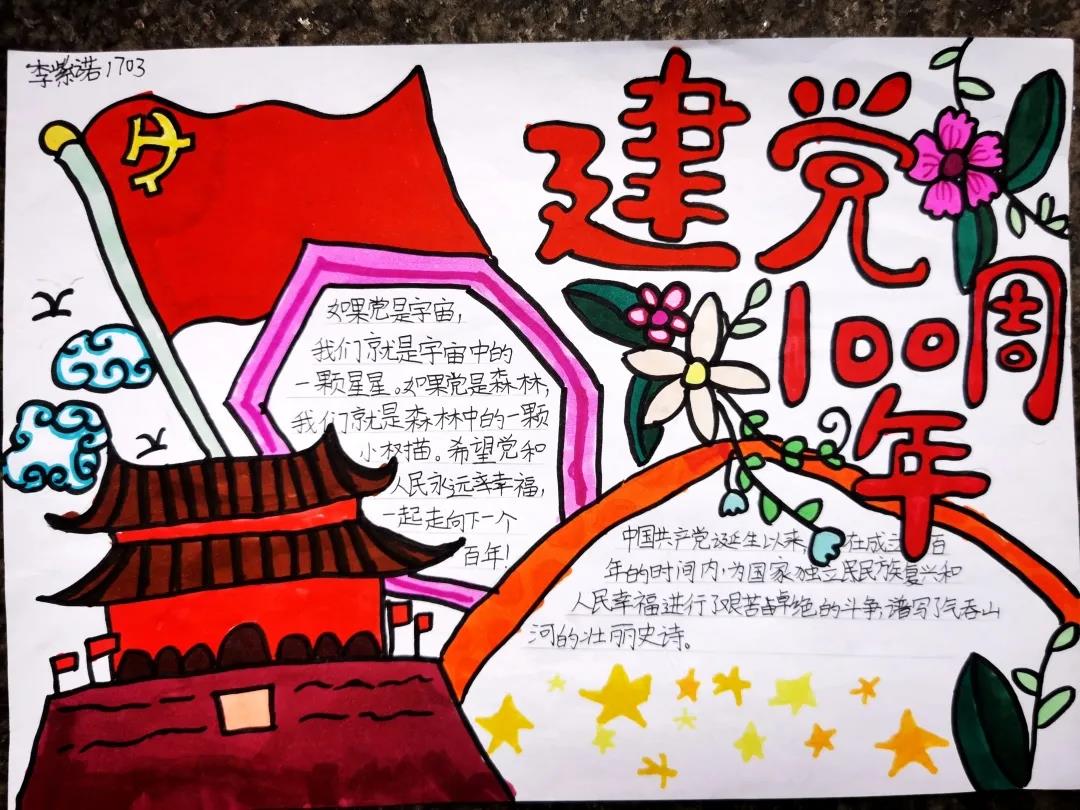 李紫诺1703
建党
100周
年
如果党是宇宙,
我们就是宇宙中的
一颗星星。如果党是森林,
我们就是森林中的一颗
小树描。希望党和
人民永远幸福,
一起走向下一个
百年!
中国共产党诞生以来, 在成立 百
年的时间内,为国家独立民民族复兴和
人民幸福进行了艰苦卓绝的斗争,谱写了气吞山
河的壮丽史诗。